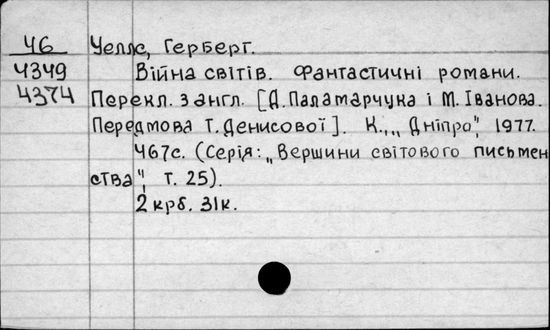 Ч6 Уеллс, Герберг.
4349 Війна світів. Фантастичні романи.
4374 Перекл. з англ. [Д. Паламарчука і М. Іванова.
Передмова Т. Денисової]. К., „Дніпро", 1977.
467с. (Серія: „Вершини світового письмен
ства", т. 25).
2 крб. 31к.